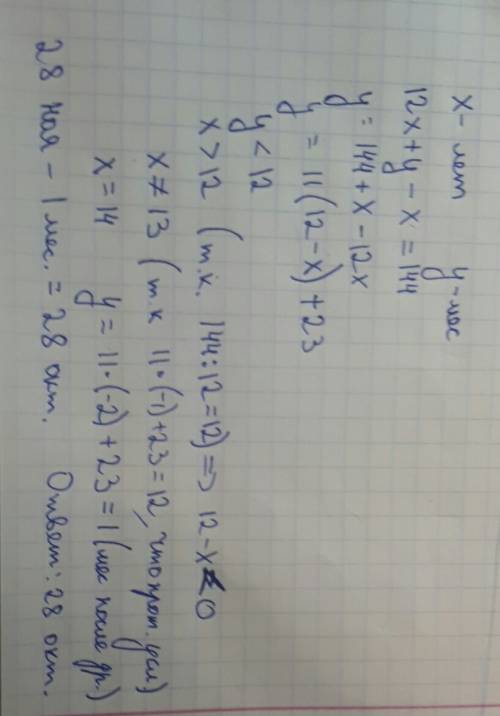 x - лет   y - мес
12x + y - x = 144
y = 144 + x - 12x
y = 11(12 - x) + 23
y < 12
x > 12 (т.к. 144:12=12) => 12 - x < 0
x ≠ 13 (т.к 11·(-1)+23=12, что прот. усл)
x = 14   y = 11·(-2)+23=1 (мес после др.)
28 ноя - 1 мес. = 28 окт.   Ответ: 28 окт.